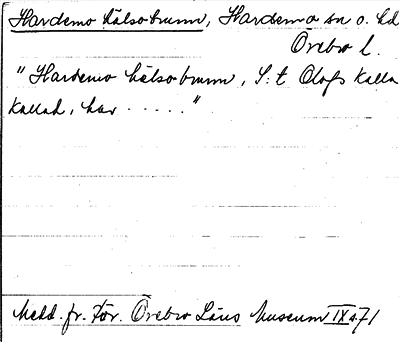 Hardemo hälsobrunn, Hardemo sn o. hd
Örebro l.
"Hardemo hälsobrunn, S:t Olofs källa
kallad, har ....."
Medd. fr. För. Örebro Läns Museum IX s. 71